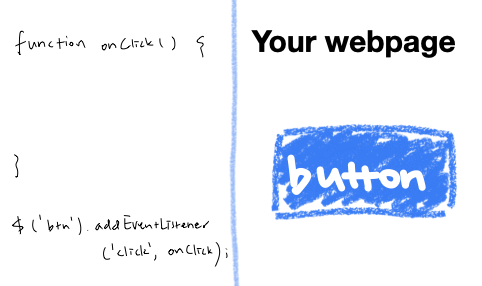 function onClick() {
}
$('btn').addEventListener
('click', onClick);
Your webpage
button